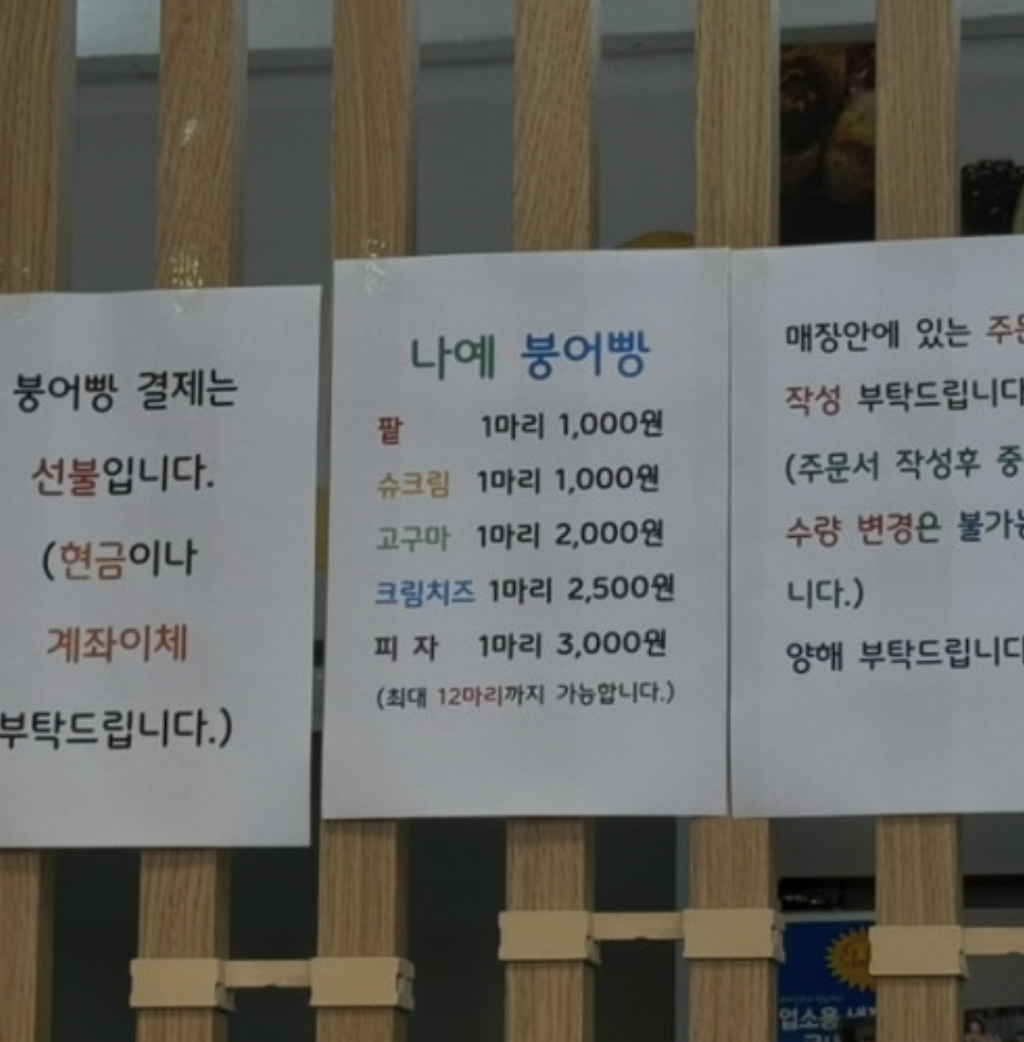 붕어빵 결제는
선불입니다.
(현금이나
계좌이체
부탁드립니다.)
나예 붕어빵
팥 1마리 1,000원
슈크림 1마리 1,000원
고구마 1마리 2,000원
크림치즈 1마리 2,500원
피 자 1마리 3,000원
(최대 12마리까지 가능합니다.)
매장안에 있는
작성 부탁드립니다
(주문서 작성후
수량 변경은
니다.)
양해 부탁드립니다
업소용